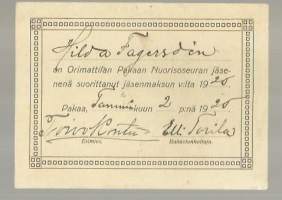 Hilda Fagerströn
on Orimattilan Pakaan Nuorisoseuran jäse-
nenä suorittanut jäsenmaksun v:lta 1920
Pakaa, Tammikuun 2 p:nä 1920
Toivo Kontu Elli Torila
Esimies. Rahastonhoitaja.